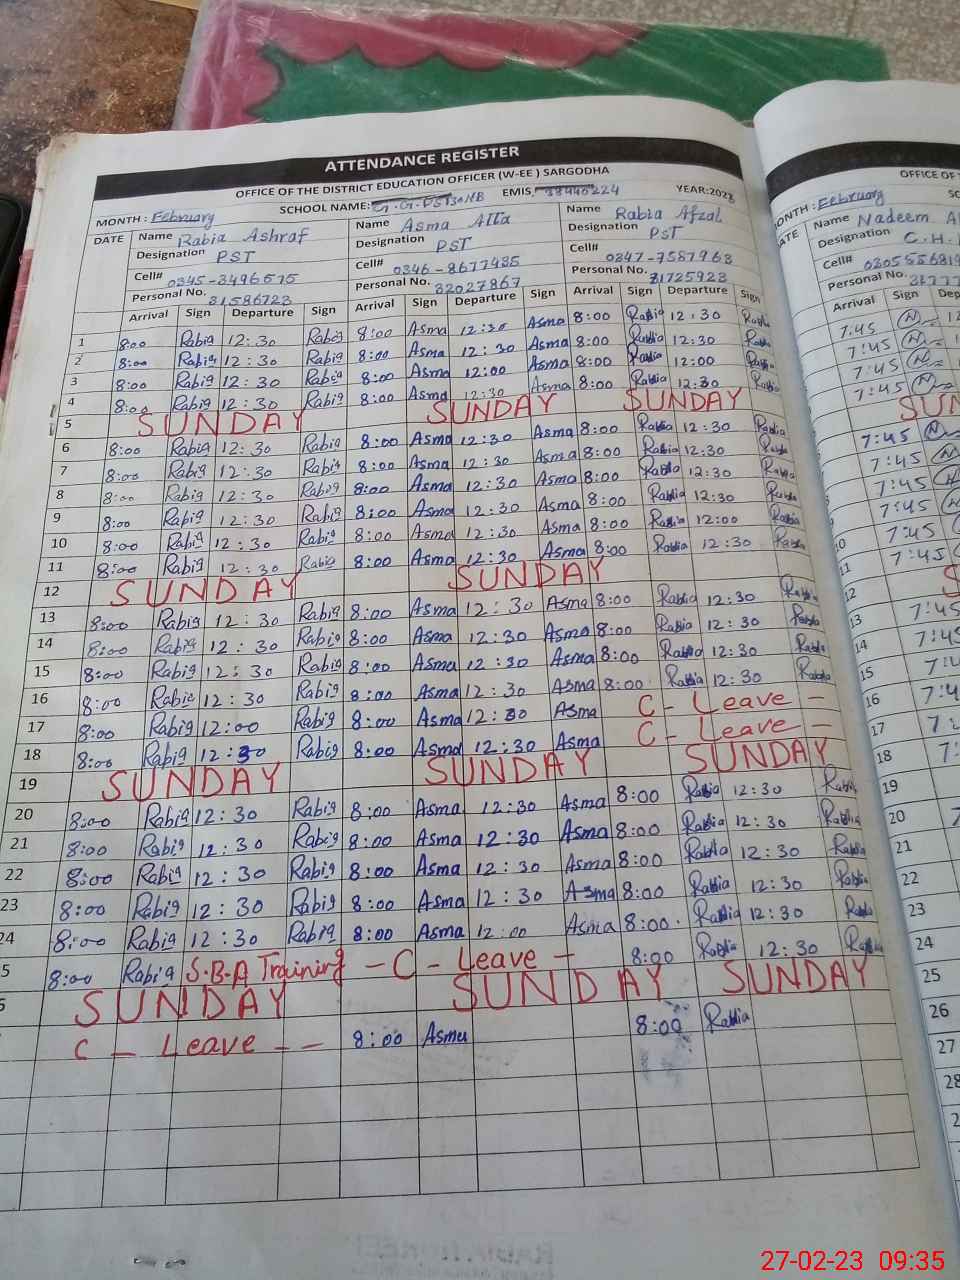 ATTENDANCE REGISTER
OFFICE OF THE DISTRICT EDUCATION OFFICER (W-EE ) SARGODHA
SCHOOL NAME: EMIS YEAR:2023
MONTH : February
DATE Name Rabia Ashraf Name Asma Atta Name Rabia Afzal
Designation PST Designation PST Designation PST
Cell# 0345-3496575 Cell# 0346-8677485 Cell# 0347-7587968
Personal No. 31586723 Personal No. 32027867 Personal No. 31725923
Arrival Sign Departure Sign Arrival Sign Departure Sign Arrival Sign Departure Sign
1 8:00 Rabia 12:30 Rabia 8:00 Asma 12:30 Asma 8:00 Rabia 12:30 Rabia
2 8:00 Rabia 12:30 Rabia 8:00 Asma 12:30 Asma 8:00 Rabia 12:30 Rabia
3 8:00 Rabia 12:30 Rabia 8:00 Asma 12:00 Asma 8:00 Rabia 12:00 Rabia
4 8:00 Rabia 12:30 Rabia 8:00 Asma 12:30 Asma 8:00 Rabia 12:30 Rabia
5 SUNDAY SUNDAY SUNDAY
6 8:00 Rabia 12:30 Rabia 8:00 Asma 12:30 Asma 8:00 Rabia 12:30 Rabia
7 8:00 Rabia 12:30 Rabia 8:00 Asma 12:30 Asma 8:00 Rabia 12:30 Rabia
8 8:00 Rabia 12:30 Rabia 8:00 Asma 12:30 Asma 8:00 Rabia 12:30 Rabia
9 8:00 Rabia 12:30 Rabia 8:00 Asma 12:30 Asma 8:00 Rabia 12:30 Rabia
10 8:00 Rabia 12:30 Rabia 8:00 Asma 12:30 Asma 8:00 Rabia 12:00 Rabia
11 8:00 Rabia 12:30 Rabia 8:00 Asma 12:30 Asma 8:00 Rabia 12:30 Rabia
12 SUNDAY SUNDAY
13 8:00 Rabia 12:30 Rabia 8:00 Asma 12:30 Asma 8:00 Rabia 12:30 Rabia
14 8:00 Rabia 12:30 Rabia 8:00 Asma 12:30 Asma 8:00 Rabia 12:30 Rabia
15 8:00 Rabia 12:30 Rabia 8:00 Asma 12:30 Asma 8:00 Rabia 12:30 Rabia
16 8:00 Rabia 12:30 Rabia 8:00 Asma 12:30 Asma 8:00 Rabia 12:30 Rabia
17 8:00 Rabia 12:00 Rabia 8:00 Asma 12:30 Asma C - Leave -
18 8:00 Rabia 12:30 Rabia 8:00 Asma 12:30 Asma C - Leave -
19 SUNDAY SUNDAY SUNDAY
20 8:00 Rabia 12:30 Rabia 8:00 Asma 12:30 Asma 8:00 Rabia 12:30 Rabia
21 8:00 Rabia 12:30 Rabia 8:00 Asma 12:30 Asma 8:00 Rabia 12:30 Rabia
22 8:00 Rabia 12:30 Rabia 8:00 Asma 12:30 Asma 8:00 Rabia 12:30 Rabia
23 8:00 Rabia 12:30 Rabia 8:00 Asma 12:30 Asma 8:00 Rabia 12:30 Rabia
24 8:00 Rabia 12:30 Rabia 8:00 Asma 12:00 Asma 8:00 Rabia 12:30 Rabia
5 8:00 Rabia S.B.A Training - C - Leave - 8:00 Rabia 12:30 Rabia
SUNDAY SUNDAY SUNDAY
C - Leave - - 8:00 Asma 8:00 Rabia
OFFICE OF
February
Name Nadeem
Designation C.H.
Cell#
Personal No.
Arrival Sign
7:45
7:45
7:45
7:45
7:45
7:45
7:45
7:45
10 7:45
11 7:45
12
13 7:45
14
15
16
17
18
19
20
21
22
23
24
25
26
27
27-02-23 09:35